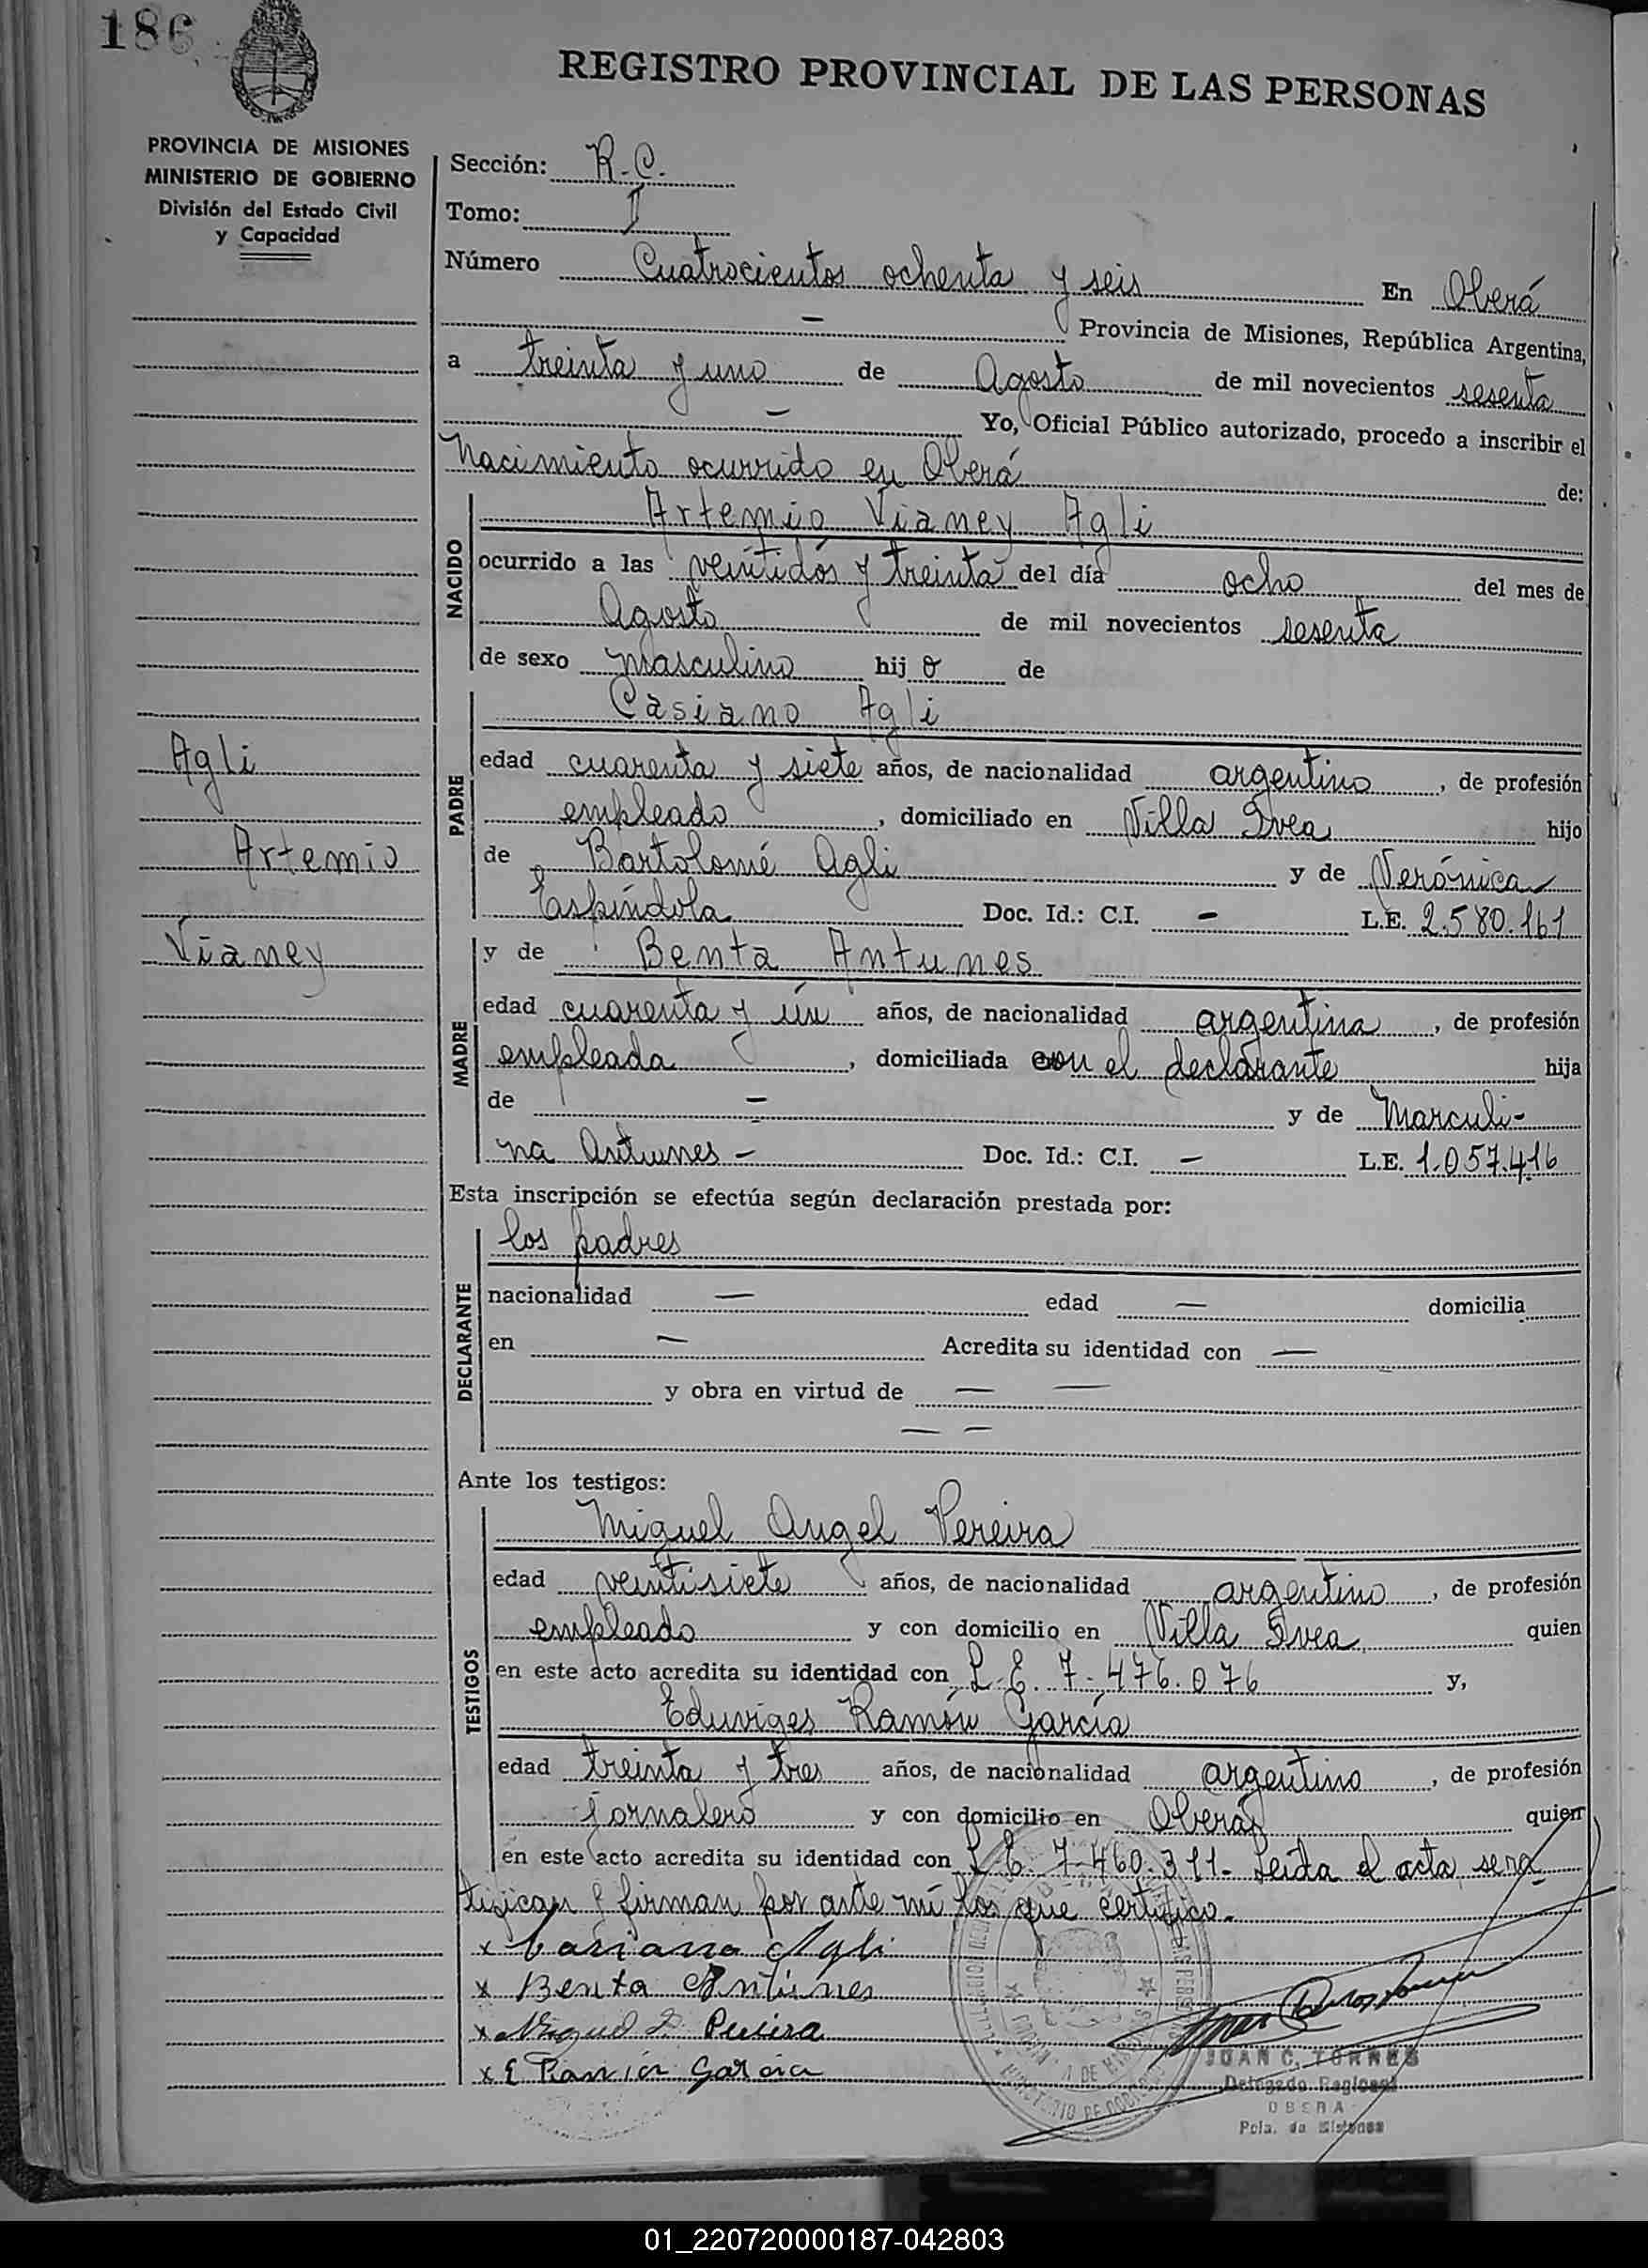 186
REGISTRO PROVINCIAL DE LAS PERSONAS
PROVINCIA DE MISIONES
MINISTERIO DE GOBIERNO
División del Estado Civil
y Capacidad
Sección: R.C.
Tomo: I
Número Cuatrocientos ochenta y seis En Oberá
— Provincia de Misiones, República Argentina,
a treinta y uno de Agosto de mil novecientos sesenta
— Yo, Oficial Público autorizado, procedo a inscribir el
Nacimiento ocurrido en Oberá de:
NACIDO
Artemio Vianey Agli
ocurrido a las veintidós y treinta del día ocho del mes de
Agosto de mil novecientos sesenta
de sexo masculino hij o de
PADRE
Casiano Agli
edad cuarenta y siete años, de nacionalidad argentino, de profesión
empleado, domiciliado en Villa Svea hijo
de Bartolomé Agli y de Verónica
Espíndola Doc. Id.: C.I. — L.E. 2.580.161
Agli
Artemio
Vianey
MADRE
y de Benta Antunes
edad cuarenta y ún años, de nacionalidad argentina, de profesión
empleada, domiciliada con el declarante hija
de — y de Marculi-
na Antunes — Doc. Id.: C.I. — L.E. 1.057.416
Esta inscripción se efectúa según declaración prestada por:
DECLARANTE
los padres
nacionalidad — edad — domicilia
en — Acredita su identidad con —
y obra en virtud de — —
— —
Ante los testigos:
TESTIGOS
Miguel Angel Pereira
edad veintisiete años, de nacionalidad argentino, de profesión
empleado y con domicilio en Villa Svea quien
en este acto acredita su identidad con L.E. 7.476.076 y,
Eduviges Ramón García
edad treinta y tres años, de nacionalidad argentino, de profesión
jornalero y con domicilio en Oberá quien
en este acto acredita su identidad con L.E. 7.460.311. Leida el acta se ra
tifican y firman por ante mí los que certifico.
x Casiano Agli
x Benta Antunes
x Miguel A. Pereira
x E Ramón García
JUAN C. TORRES
Delegado Regional
OBERA
Pcia. de Misiones
01_220720000187-042803